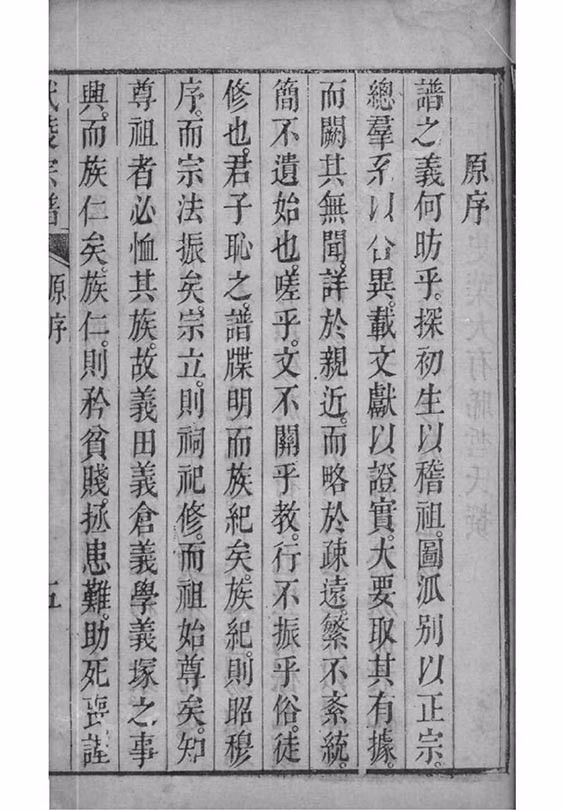 原序
譜之義何昉乎。探初生以稽祖。圖派別以正宗。
總羣系以合異。載文獻以證實。大要取其有據。
而闕其無聞。詳於親近。而略於疎遠。繁不紊統。
簡不遺始也。嗟乎。文不關乎教。行不振乎俗。徒
修也。君子恥之。譜牒明而族紀矣。族紀。則昭穆
序。而宗法振矣。宗立。則祠祀修。而祖始尊矣。知
尊祖。者必恤其族。故義田義倉義學義塚之事
興。而族仁矣。族仁。則矜貧賤。拯患難。助死喪。誼
宗譜 原序 五